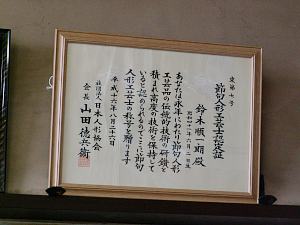 定第七号
節句人形工芸士認定証
鈴木順一朗殿
昭和四十一年八月二日生
あなたは永年にわたり節句人形
工芸品の伝統的技術の研鑽を
積まれ高度の技術を保持して
いると認められるのでここに節句
人形工芸士の称号を贈ります
平成十六年八月二十六日
社団法人日本人形協会
会長 山田徳兵衛